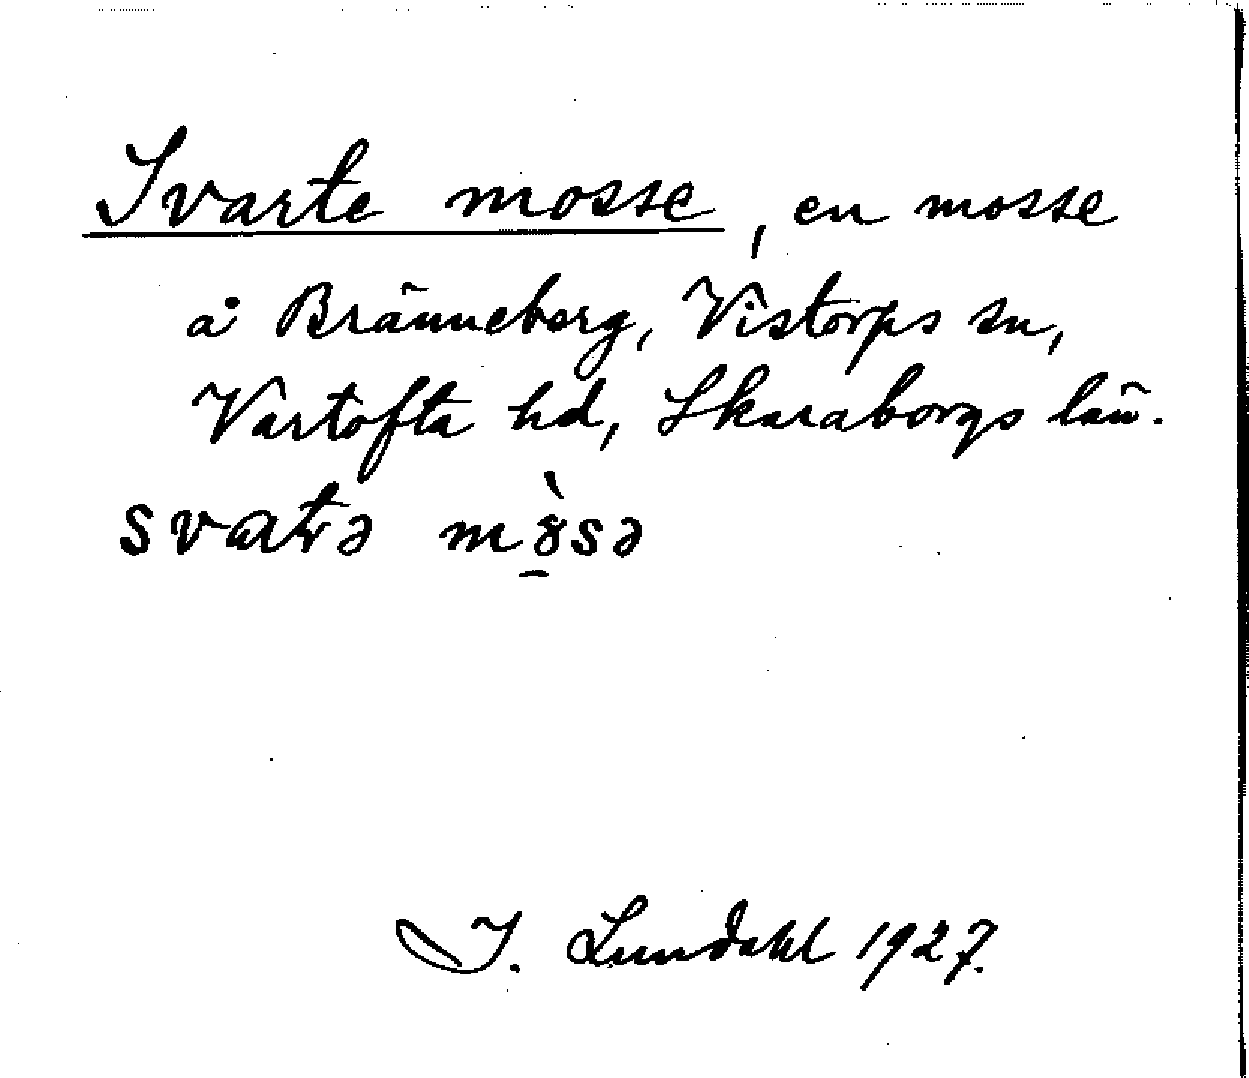 Svarte mosse, en mosse
å Bränneberg, Vistorps sn,
Vartofta hd, Skaraborgs län.
I. Lundahl 1927.